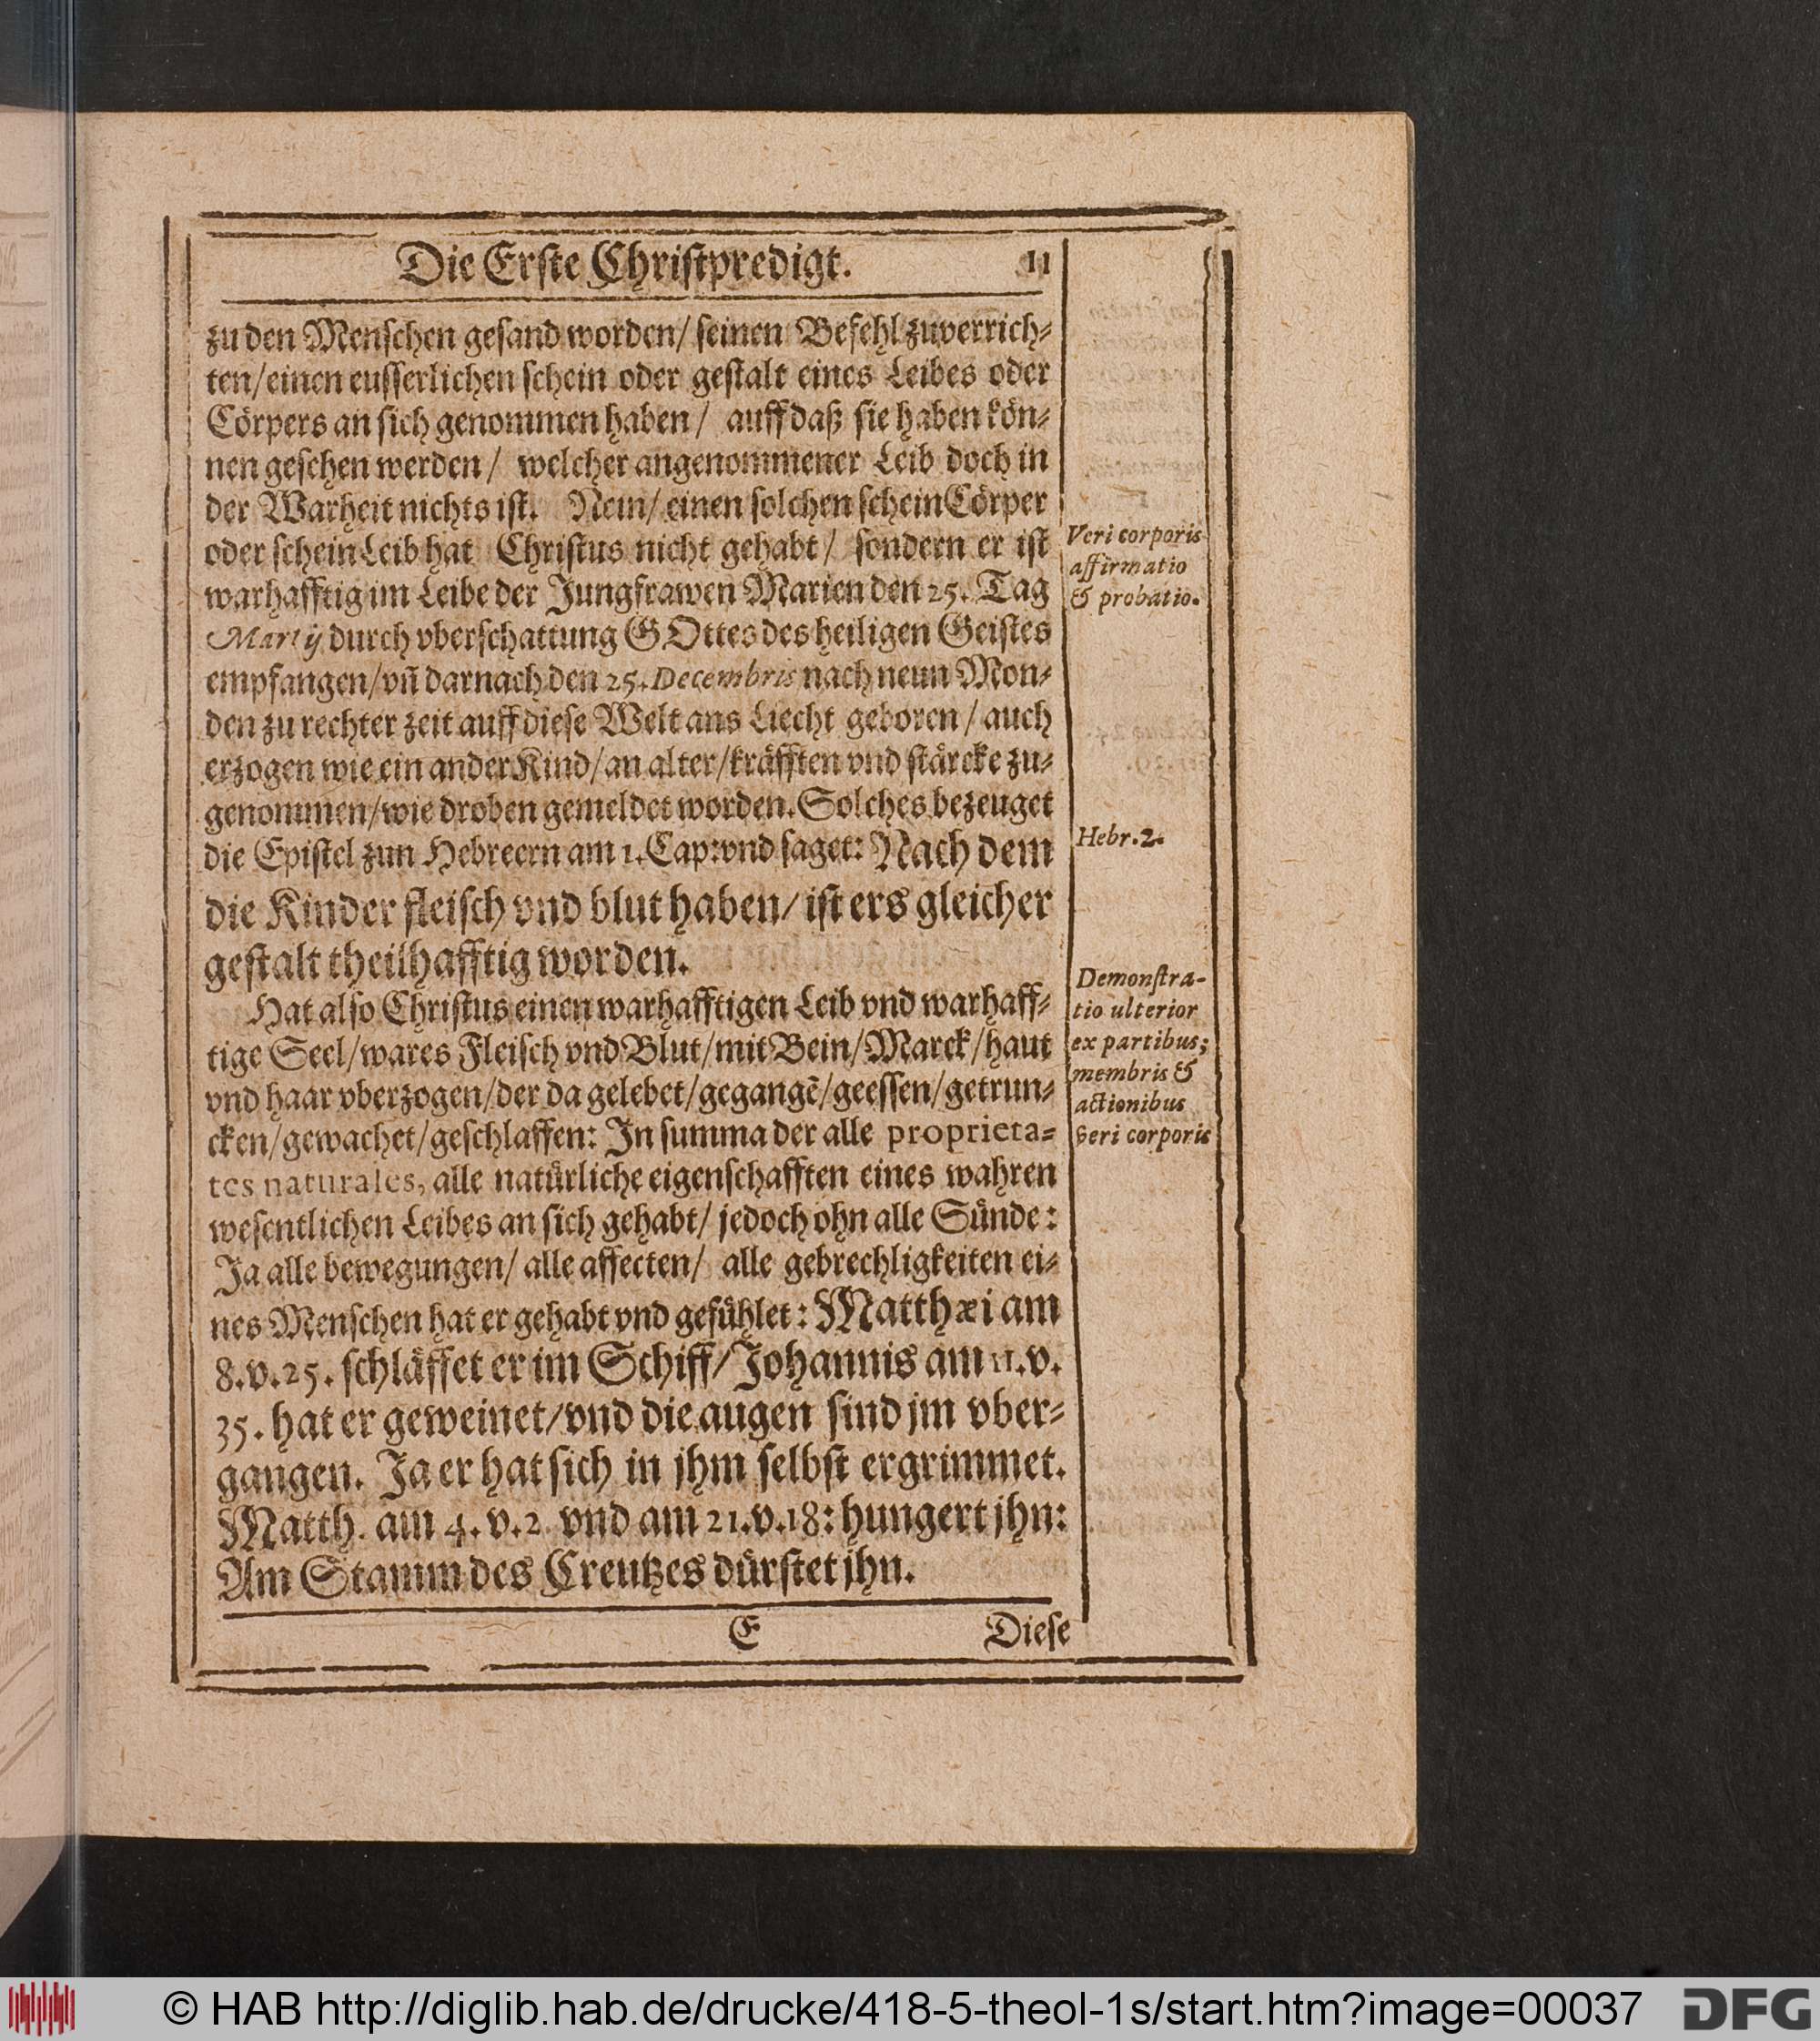 Die Erste Christpredigt. 11
zu den Menschen gesand worden/ seinen Befehl zuverrich-
ten/einen eusserlichen schein oder gestalt eines Leibes oder
Cörpers an sich genommen haben/ auff daß sie haben kön-
nen gesehen werden/ welcher angenommener Leib doch in
der Warheit nichts ist. Nein/ einen solchen schein Cörper
oder schein Leib hat Christus nicht gehabt/ sondern er ist
warhafftig im Leibe der Jungfrawen Marien den 25. Tag
Martij durch vberschattung GOttes des heiligen Geistes
empfangen/vñ darnach den 25. Decembris nach neun Mon-
den zu rechter zeit auff diese Welt ans Liecht geboren/ auch
erzogen wie ein ander Kind/an alter/kräfften vnd stärcke zu-
genommen/wie droben gemeldet worden. Solches bezeuget
die Epistel zun Hebreern am 1. Cap: vnd saget: Nach dem
die Kinder fleisch vnd blut haben/ ist ers gleicher
gestalt theilhafftig worden.
Hat also Christus einen warhafftigen Leib vnd warhaff-
tige Seel/wares Fleisch vnd Blut/mit Bein/Marck/haut
vnd haar vberzogen/der da gelebet/gegangē/geessen/getrun-
cken/gewachet/geschlaffen: In summa der alle proprieta-
tes naturales, alle natürliche eigenschafften eines wahren
wesentlichen Leibes an sich gehabt/ jedoch ohn alle Sünde:
Ja alle bewegungen/ alle affecten/ alle gebrechligkeiten ei-
nes Menschen hat er gehabt vnd gefühlet: Matthæi am
8.v.25. schläffet er im Schiff/Johannis am 11.v.
35. hat er geweinet/vnd die augen sind jm vber-
gangen. Ja er hat sich in jhm selbst ergrimmet.
Matth. am 4. v.2. vnd am 21.v.18: hungert jhn:
Am Stamm des Creutzes dürstet jhn.
E Diese
Veri corporis
affirmatio
& probatio.
Hebr. 2.
Demonstra-
tio ulterior
ex partibus;
membris &
actionibus
veri corporis
© HAB http://diglib.hab.de/drucke/418-5-theol-1s/start.htm?image=00037
DFG